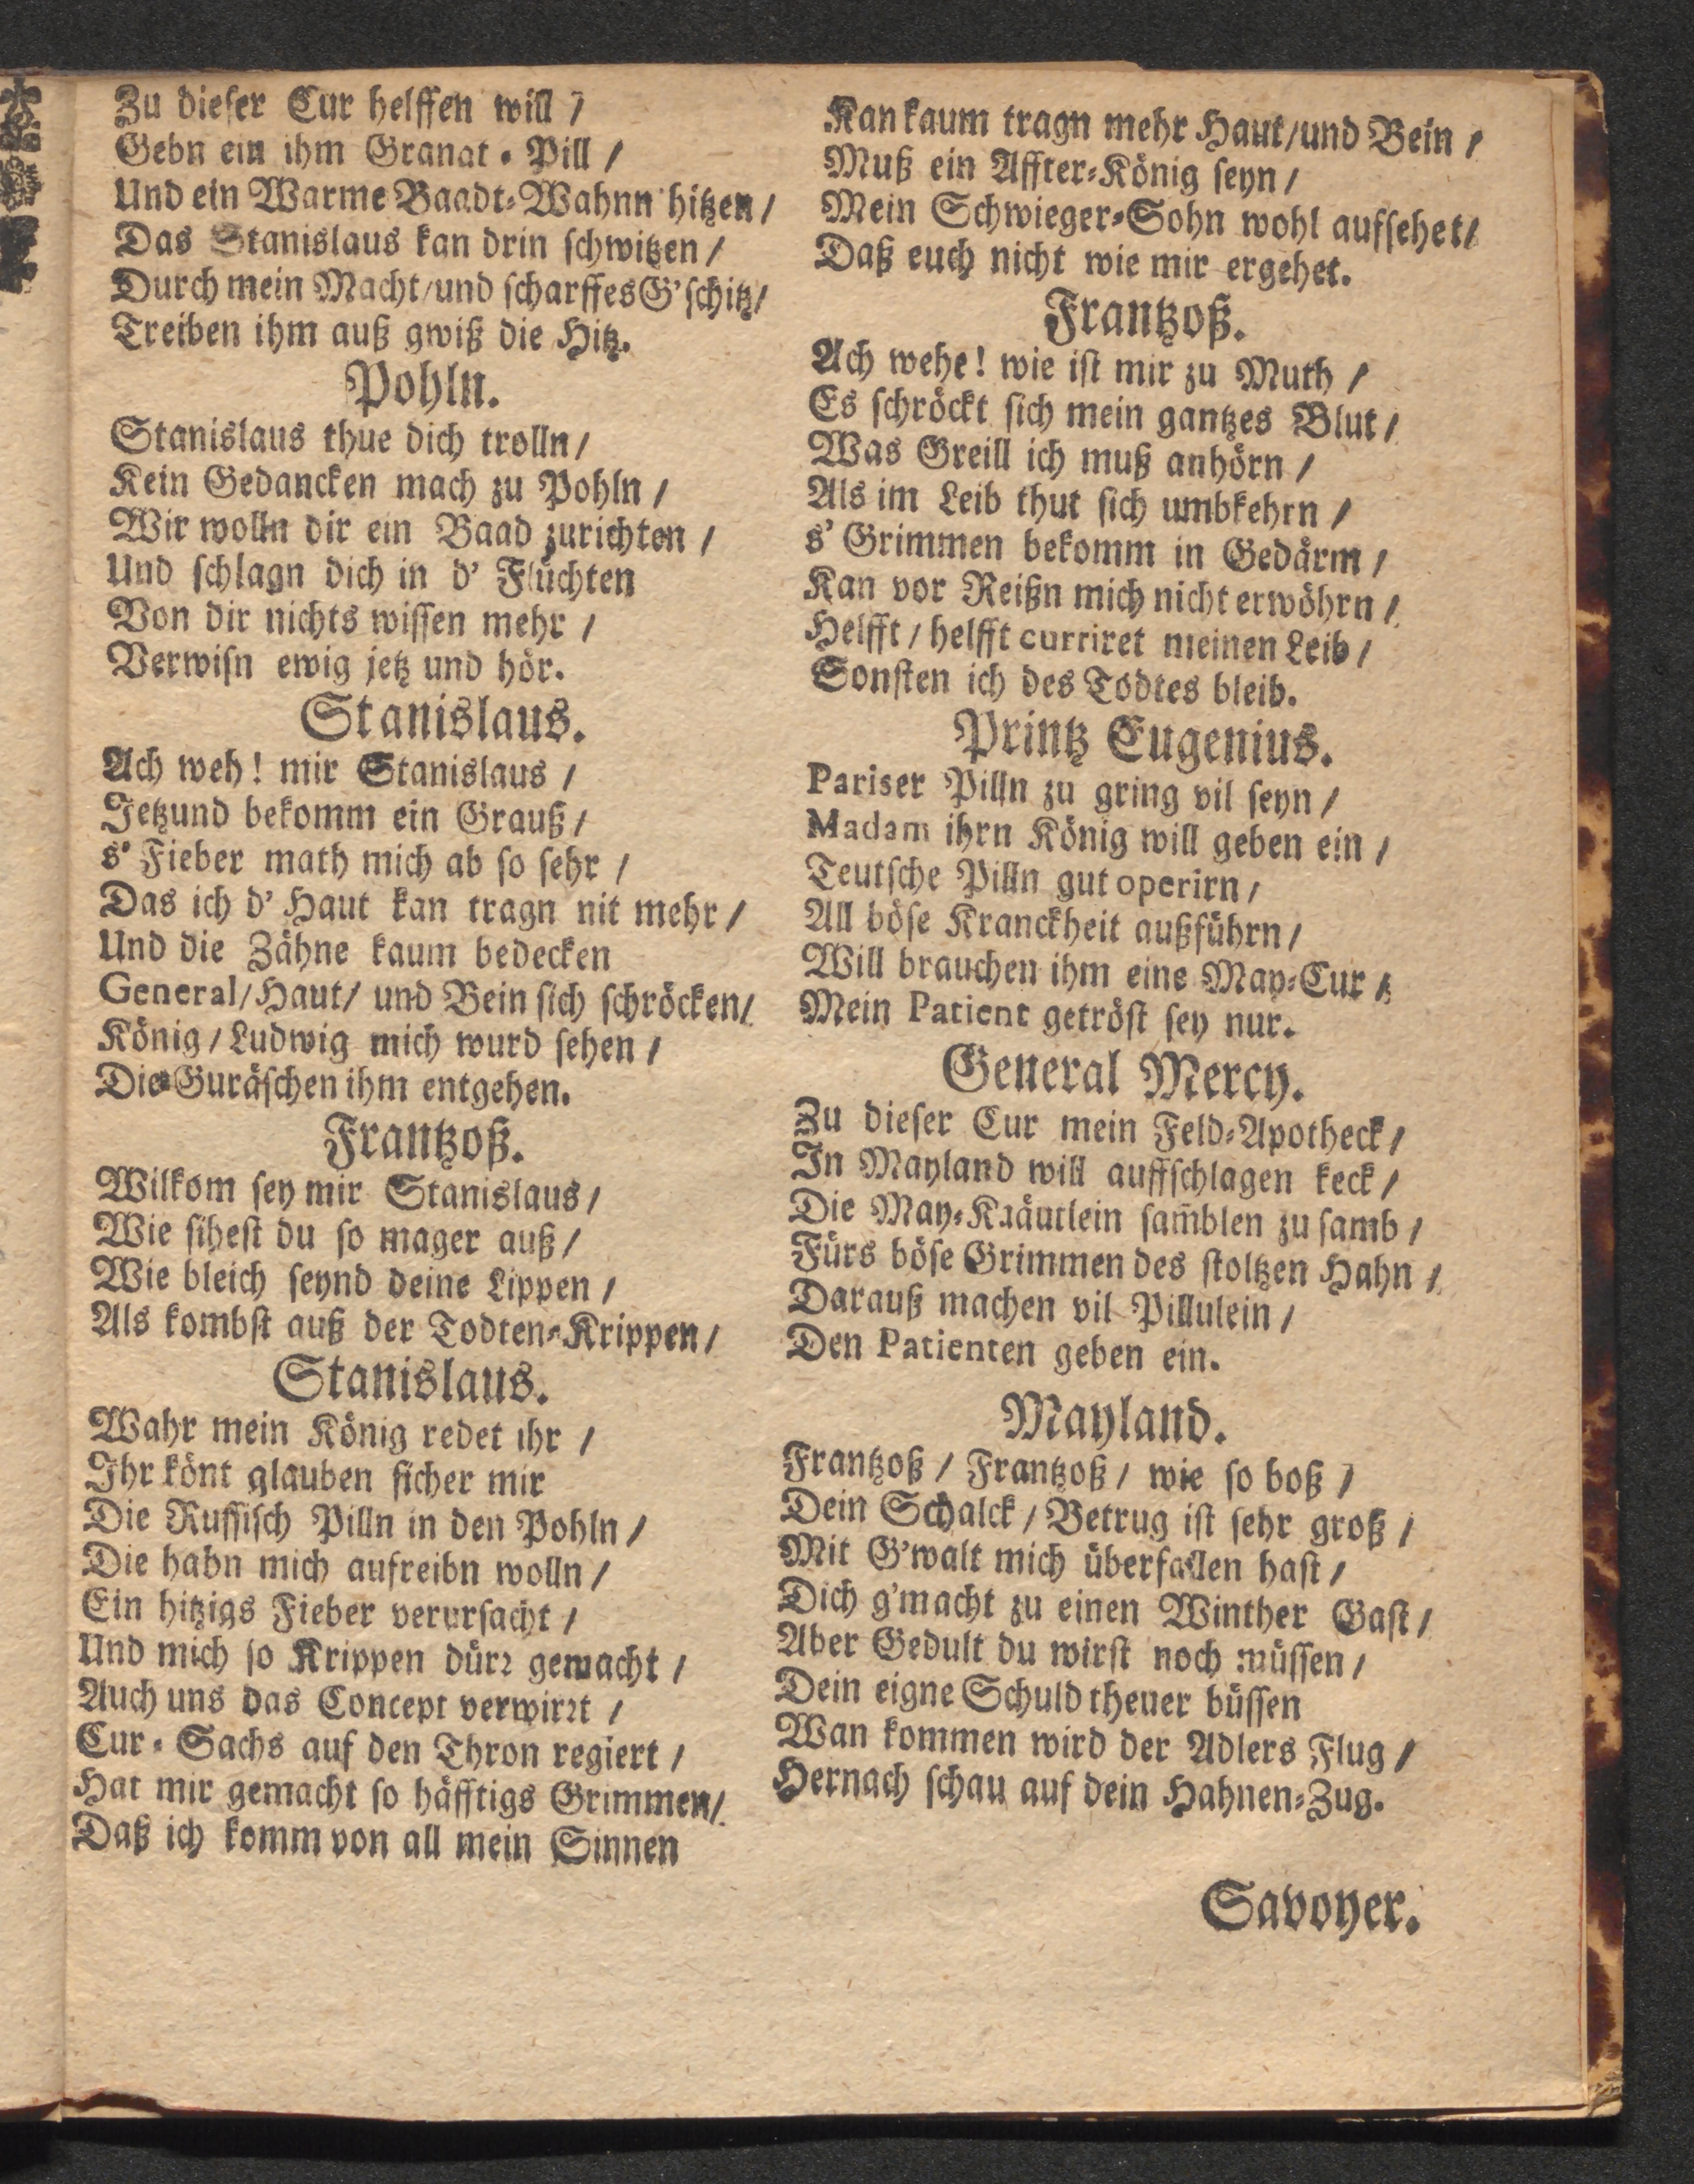 Zu dieser Cur helffen will /
Gebn ein ihm Granat-Pill /
Und ein Warme Baadt-Wahnn hitzen /
Das Stanislaus kan drin schwitzen /
Durch mein Macht / und scharffes G'schitz /
Treiben ihm auß gwiß die Hitz.
Pohln.
Stanislaus thue dich trolln /
Kein Gedancken mach zu Pohln /
Wir wolln dir ein Baad zurichten /
Und schlagn dich in d' Flüchten
Von dir nichts wissen mehr /
Verwisn ewig jetz und hör.
Stanislaus.
Ach weh! mir Stanislaus /
Jetzund bekomm ein Grauß /
s' Fieber math mich ab so sehr /
Das ich d' Haut kan tragn nit mehr /
Und die Zähne kaum bedecken
General / Haut / und Bein sich schröcken /
König / Ludwig mich wurd sehen /
Die Guräschen ihm entgehen.
Frantzoß.
Wilkom sey mir Stanislaus /
Wie sihest du so mager auß /
Wie bleich seynd deine Lippen /
Als kombst auß der Todten-Krippen /
Stanislaus.
Wahr mein König redet ihr /
Ihr könt glauben sicher mir
Die Russisch Pilln in den Pohln /
Die habn mich aufreibn wolln /
Ein hitzigs Fieber verursacht /
Und mich so Krippen dürr gemacht /
Auch uns das Concept verwirrt /
Cur-Sachs auf den Thron regiert /
Hat mir gemacht so häfftigs Grimmen /
Daß ich komm von all mein Sinnen
Kan kaum tragn mehr Haut / und Bein /
Muß ein Affter-König seyn /
Mein Schwieger-Sohn wohl aufsehet /
Daß euch nicht wie mir ergehet.
Frantzoß.
Ach wehe! wie ist mir zu Muth /
Es schröckt sich mein gantzes Blut /
Was Greill ich muß anhörn /
Als im Leib thut sich umbkehrn /
s' Grimmen bekomm in Gedärm /
Kan vor Reißn mich nicht erwöhrn /
Helfft / helfft curriret meinen Leib /
Sonsten ich des Todtes bleib.
Printz Eugenius.
Pariser Pilln zu gring vil seyn /
Madam ihrn König will geben ein /
Teutsche Pilln gut operirn /
All böse Kranckheit außführn /
Will brauchen ihm eine May-Cur /
Mein Patient getröst sey nur.
General Mercy.
Zu dieser Cur mein Feld-Apotheck /
In Mayland will auffschlagen keck /
Die May-Kräutlein sam̃blen zu samb /
Fürs böse Grimmen des stoltzen Hahn /
Darauß machen vil Pillulein /
Den Patienten geben ein.
Mayland.
Frantzoß / Frantzoß / wie so boß /
Dein Schalck / Betrug ist sehr groß /
Mit G'walt mich überfallen hast /
Dich g'macht zu einen Winther Gast /
Aber Gedult du wirst noch müssen /
Dein eigne Schuld theuer büssen
Wan kommen wird der Adlers Flug /
Hernach schau auf dein Hahnen-Zug.
Savoyer.